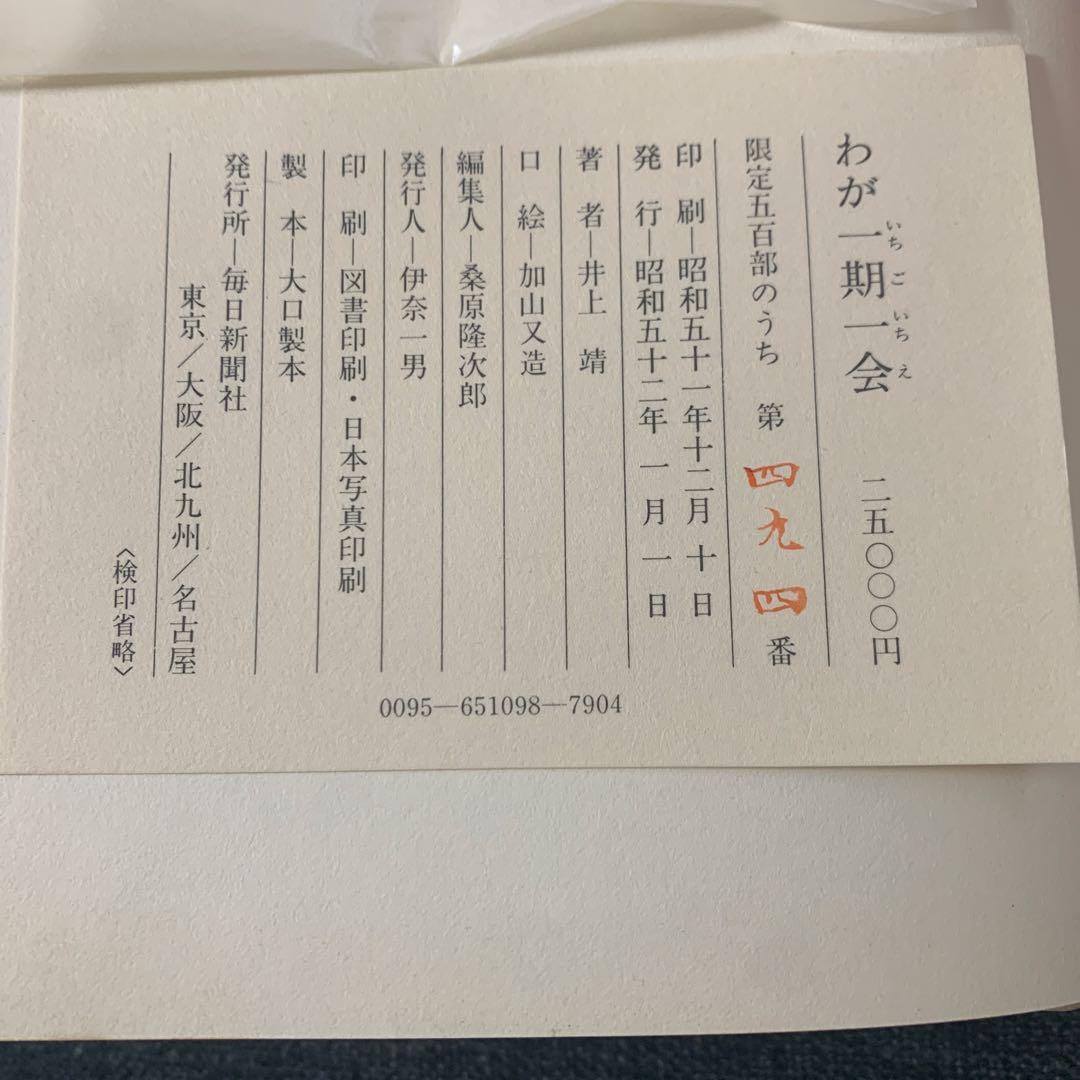 わが一期一会 二五〇〇〇円
いちごいちえ
限定五百部のうち 第四九四番
印刷―昭和五十一年十二月十日
発行―昭和五十二年一月一日
著者―井上靖
口絵―加山又造
編集人―桑原隆次郎
発行人―伊奈一男
印刷―図書印刷・日本写真印刷
製本―大口製本
発行所―毎日新聞社
東京/大阪/北九州/名古屋
〈検印省略〉
0095―651098―7904